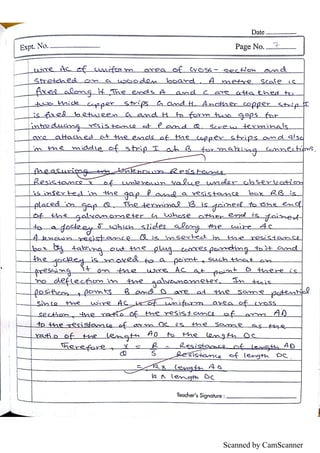 Date
Expt. No.
Page No. 7
wire AC of uniform area of cross-section and
stretched on a wooden board. A metre scale is
fixed along it. The ends A and C are attached to
two thick copper strips G and H. Another copper strip I
is fixed between G and H to form two gaps for
introducing resistance at P and Q. Screw terminals
are attached at the ends of the copper strips and also
in the middle of strip I at B for making connections.
Measuring an Unknown Resistance
Resistance X of unknown value under observation
is inserted in the gap P and a resistance box RB is
placed in gap Q. The terminal B is joined to one end
of the galvanometer G whose other end is joined
to a jockey J which slides along the wire AC
A known resistance Q is inserted in the resistance
box by taking out the plug corresponding it and
the jockey is moved to a point, such that on
pressing it on the wire AC at point D there is
no deflection in the galvanometer. In this
position, points B and D are at the same potential
Since the wire AC is of uniform area of cross
section, the ratio of the resistance of arm AD
to the resistance of arm DC is the same as the
ratio of the length AD to the length DC
Therefore, X = R = Resistance of length AD
Q S Resistance of length DC
= k x length AD
k x length DC
Teacher's Signature :
Scanned by CamScanner